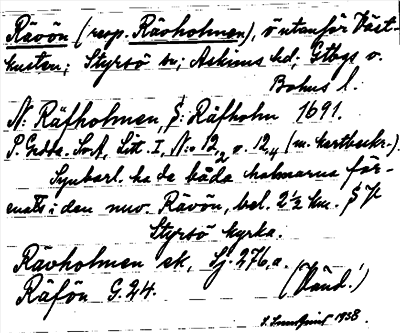 Rävön (resp. Rävholmen), ö utanför Väst-
kusten; Styrsö sn; Askims hd; Gtbgs o.
Bohus l.
N: Räfholmen, S: Räfholm 1691.
P. Gedda. SvA, Litt. I, N:o 12,2 o. 12,4 (m. kartbeskr.).
Synbarl. ha de båda holmarna för-
enats i den nuv. Rävön, bel. 2½ km. S
Styrsö kyrka.
Rävholmen ek, Sj. 276,a.
Räfön G. 24.
1938.